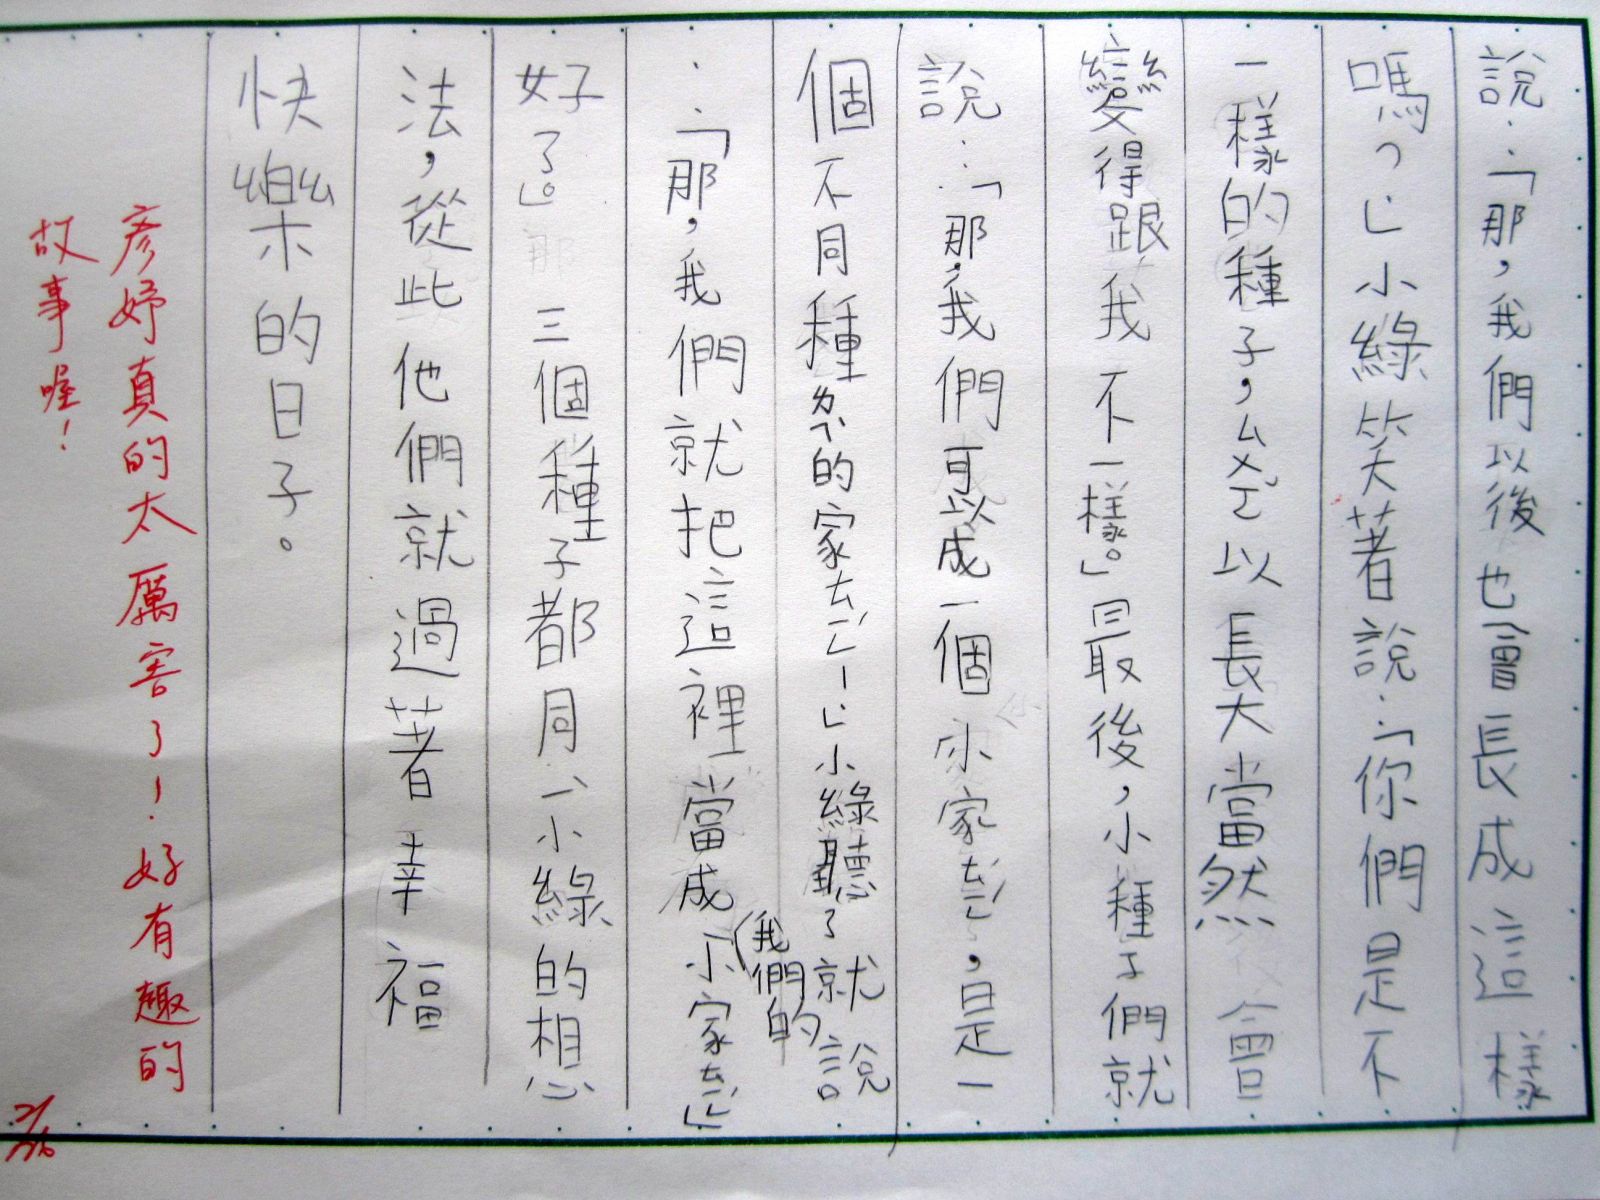 說:「那,我們以後也會長成這樣
嗎?」小綠笑著說:「你們是不
一樣的種子,ㄙㄨㄛˇ以長大當然會
變得跟我不一樣。」最後,小種子們就
說:「那,我們可以成一個小家ㄊㄧㄥˊ,是一
個不同種ㄌㄟˋ的家ㄊㄧㄥˊ!」小綠聽了就說
:「那,我們就把這裡當成(我們的小家ㄊㄧㄥˊ」
好了」。三個種子都同一小綠的想
法,從此他們就過著幸福
快樂的日子。
彥妤真的太厲害了!好有趣的
故事喔!